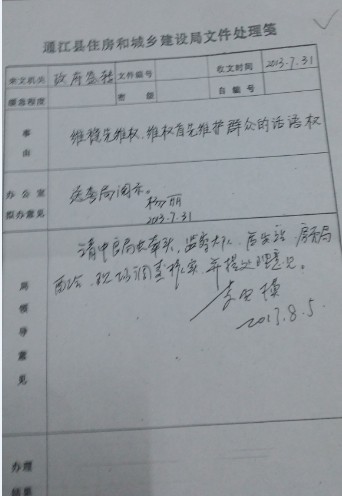 通江县住房和城乡建设局文件处理笺
来文机关 政府器转 文件编号 收文时间 2013.7.31
缓急程度 密级 自编号
事由 维稳先维权、维权首先维护群众的话语权
办公室拟办意见 送李局阅示。
杨丽
2013.7.31
局领导意见 请中良局长牵头、监察大队、质安站、房管局
现场调查核实,并提处理意见。
2013.8.5.
办理结果